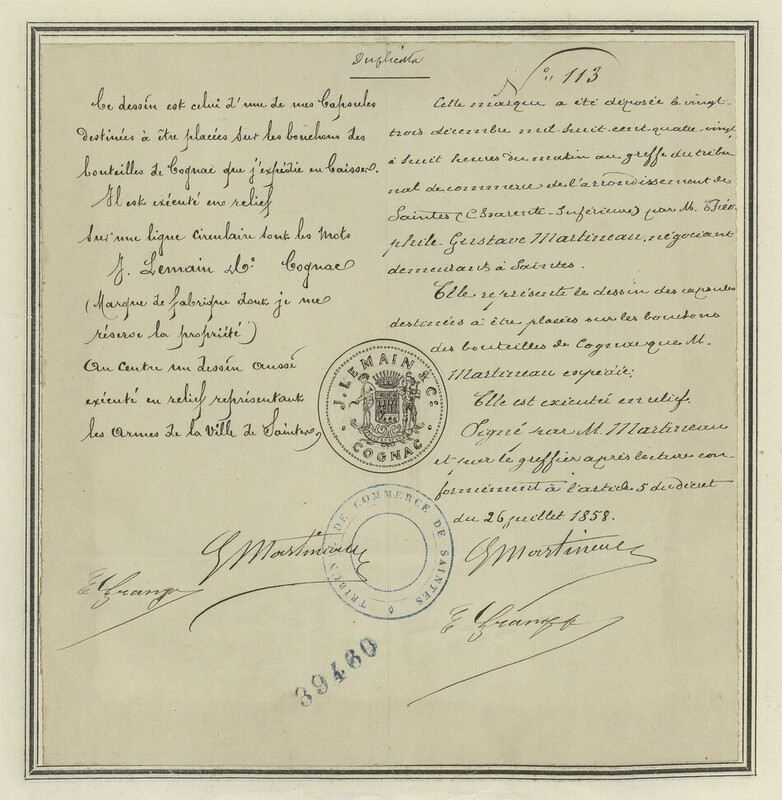 Duplicata
Ce dessin est celui d'une de mes Capsules
destinées à être placées sur les bouchons des
bouteilles de Cognac que j'expédie en Caisses.
Il est exécuté en relief
Sur une ligne circulaire sont les mots
J. Lemain & Co Cognac
(Marque de fabrique dont je me
réserve la propriété)
Au Centre un dessin aussi
exécuté en relief représentant
les Armes de la Ville de Saintes,
G Martineau
No 113
Cette marque a été déposée le vingt-
trois décembre mil huit cent quatre-vingt
à huit heures du matin au greffe du tribu-
nal de commerce de l'arrondissement de
Saintes (Charente-Inférieure) par M. Théo-
phile-Gustave Martineau, négociant
demeurant à Saintes.
Elle représente le dessin des capsules
destinées à être placées sur les bouchons
des bouteilles de Cognac que M.
Martineau expédie;
Elle est exécutée en relief.
Signé par M. Martineau
et par le greffier après lecture con-
formément à l'article 5 du décret
du 26 juillet 1858.
G Martineau
J. LEMAIN & Co
COGNAC
TRIBUNAL DE COMMERCE DE SAINTES
39460